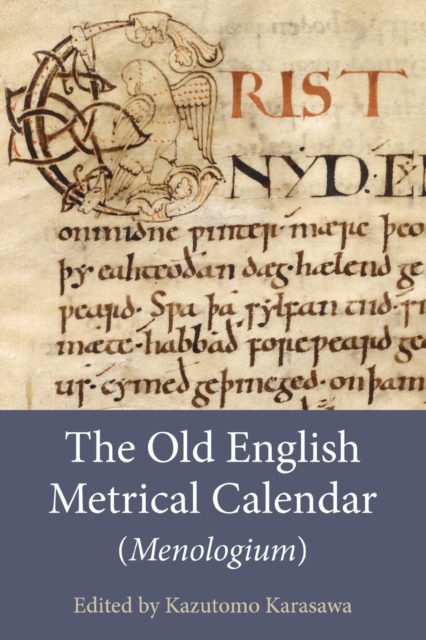 CRIST
NẎD. E
onmidne ƿinter. mære þeo
þẏ eahteoðan dæg. hælend ge
ƿeard. Sƿa þa sẏlfan tiid. si
mæte. habbað foreƿeard ge
us. cẏmeð geþincged. onþam
The Old English
Metrical Calendar
(Menologium)
Edited by Kazutomo Karasawa